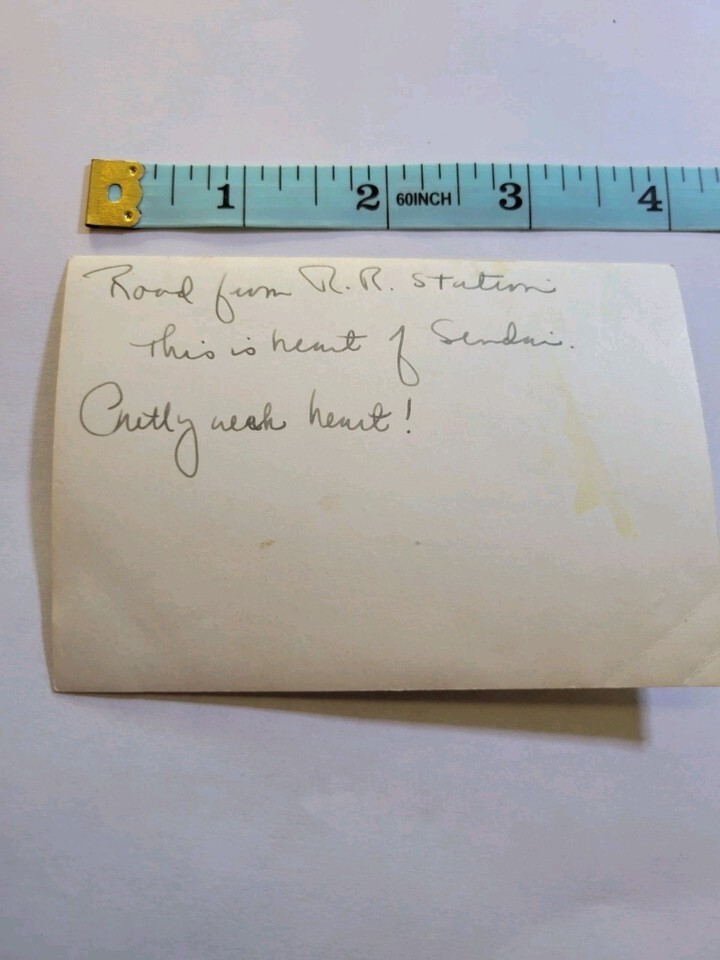 1 2 60INCH 3 4
Road from R.R. Station
This is heart of Sendai.
Pretty weak heart!